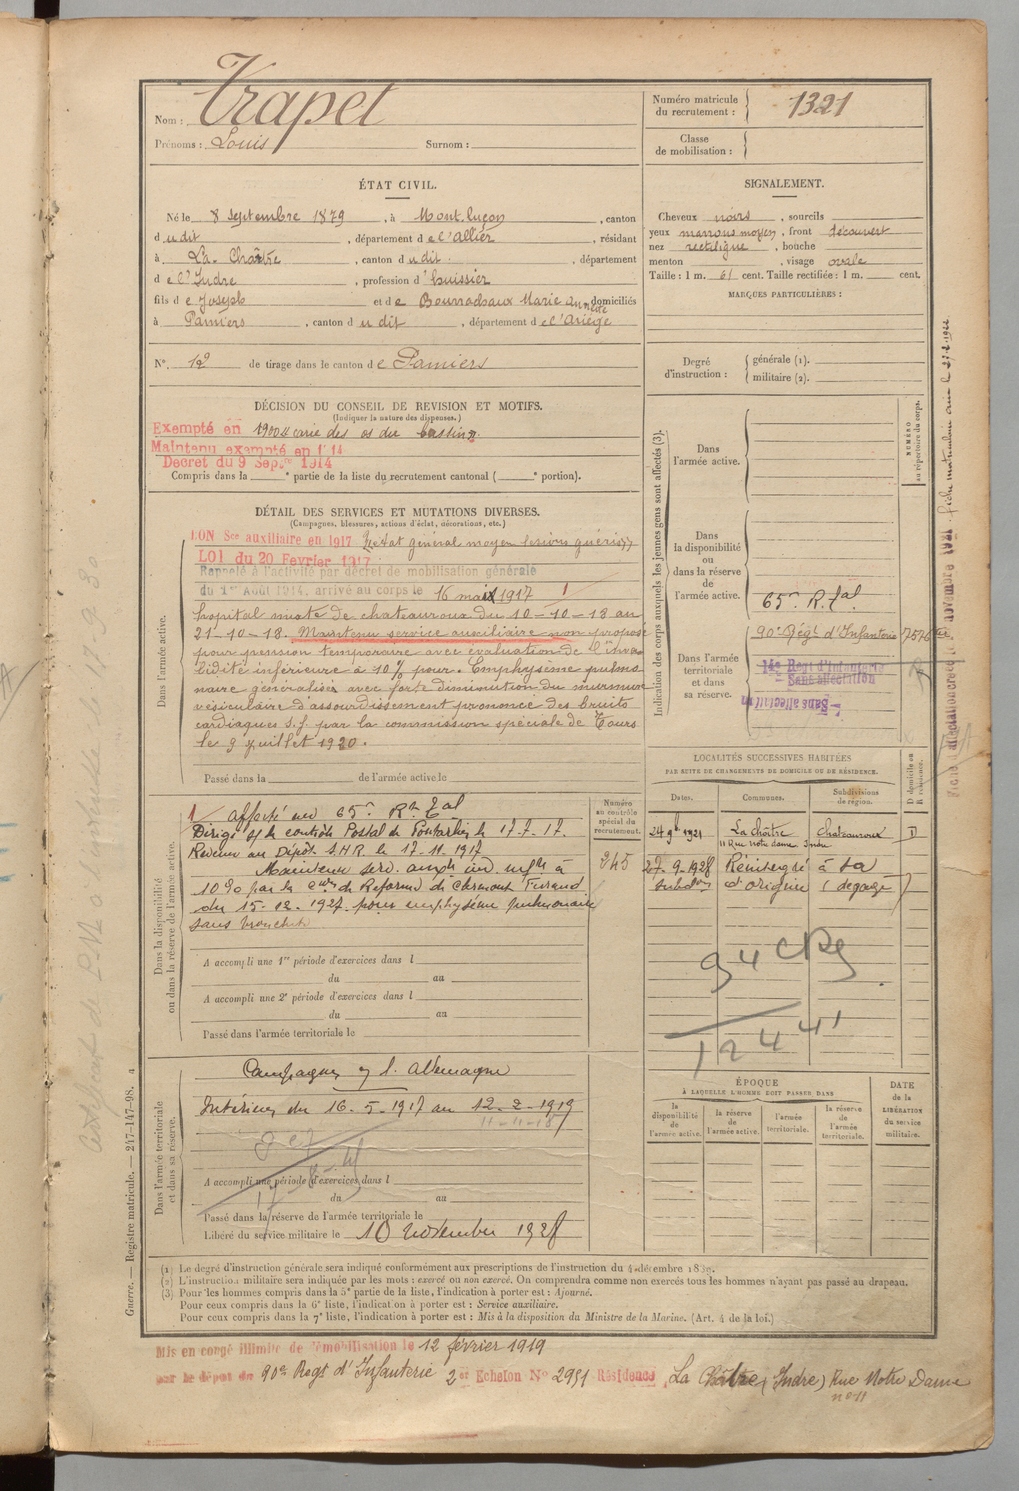 Nom : Trapet
Prénoms : Louis Surnom :
Numéro matricule du recrutement : 1321
Classe de mobilisation :
ÉTAT CIVIL.
Né le 8 septembre 1879, à Mont.luçon, canton
d udit, département d e l'Allier, résidant
à La Châtre, canton d udit, département
d e l'Indre, profession d'huissier
fils d e Joseph et d e Marie domiciliés
à Pamiers, canton d u dit, département d e l'Ariège
N°. 12 de tirage dans le canton d e Pamiers
SIGNALEMENT.
Cheveux noirs, sourcils
yeux marrons moyen, front découvert
nez rectiligne, bouche
menton, visage ovale
Taille : 1 m. 61 cent. Taille rectifiée : 1 m. cent.
MARQUES PARTICULIÈRES :
Degré d'instruction : générale (1).
militaire (2).
DÉCISION DU CONSEIL DE REVISION ET MOTIFS.
(Indiquer la nature des dispenses.)
Exempté en 1900 carie des os du
Maintenu exempté en 1914
Decret du 9 Sepbre 1914
Compris dans la e partie de la liste du recrutement cantonal ( e portion).
DÉTAIL DES SERVICES ET MUTATIONS DIVERSES.
(Campagnes, blessures, actions d'éclat, décorations, etc.)
Dans l'armée active.
Sce auxiliaire en 1917 état général moyen
LOI du 20 Fevrier 1917
Rappelé à l'activité par décret de mobilisation générale
du 1er Août 1914, arrivé au corps le 16 mai 1917
hopital mixte de chateauroux du 10-10-18 au
21-10-18. Maintenu service auxiliaire non proposé
pour pension temporaire avec évaluation de l'inva
lidité inférieure à 10% pour. Emphysème pulmo
naire généralisés avec forte diminution du murmure
vésiculaire d'assourdissement prononcé des bruits
cardiaques S.f. par la commission spéciale de Tours
le 9 juillet 1920.
Passé dans la de l'armée active le
Dans la disponibilité ou dans la réserve de l'armée active.
Numéro au contrôle spécial du recrutement.
245
Affecté au 65e Rt Tal
Dirigé s/ le contrôle Postal de Pontarlier le 17.7.17.
Revenu au Dépôt S.H.R. le 17.11.1917
Maintenu serv. à
10% par la de Réforme de Clermont Ferrand
du 15.12.1927 pour emphysème pulmonaire
sans
A accompli une 1re période d'exercices dans l
du au
A accompli une 2e période d'exercices dans l
du au
Passé dans l'armée territoriale le
Dans l'armée territoriale et dans sa réserve.
Campagne c/ l'Allemagne
Intérieur du 16.5.1917 au 12.2.1919
11-11-18
A accompli une période d'exercices dans l
du au
Passé dans la réserve de l'armée territoriale le
Libéré du service militaire le 10 novembre 1928
Indication des corps auxquels les jeunes gens sont affectés (3).
NUMÉRO au répertoire du corps.
Dans l'armée active.
Dans la disponibilité ou dans la réserve de l'armée active.
65e R. Tal.
Dans l'armée territoriale et dans sa réserve.
90e Régt d'Infanterie
Regt d'Infanterie
Sans affectation
Sans affectation
LOCALITÉS SUCCESSIVES HABITÉES
PAR SUITE DE CHANGEMENTS DE DOMICILE OU DE RÉSIDENCE.
Dates. Communes. Subdivisions de région. D domicile ou R résidence.
24 9b 1921 La Châtre Chateauroux D
11 Rue Notre dame Indre
27.9.1928 Réintégré à sa
Subdon d'origine
94
12441
ÉPOQUE
À LAQUELLE L'HOMME DOIT PASSER DANS
la disponibilité de l'armée active.
la réserve de l'armée active.
l'armée territoriale.
la réserve de l'armée territoriale.
DATE de la LIBÉRATION du service militaire.
(1) Le degré d'instruction générale sera indiqué conformément aux prescriptions de l'instruction du 4 décembre 1889.
(2) L'instruction militaire sera indiquée par les mots : exercé ou non exercé. On comprendra comme non exercés tous les hommes n'ayant pas passé au drapeau.
(3) Pour les hommes compris dans la 5e partie de la liste, l'indication à porter est : Ajourné.
Pour ceux compris dans la 6e liste, l'indication à porter est : Service auxiliaire.
Pour ceux compris dans la 7e liste, l'indication à porter est : Mis à la disposition du Ministre de la Marine. (Art. 4 de la loi.)
Guerre. — Registre matricule. — 247-147-98.
Mis en congé illimité de démobilisation le 12 février 1919
par le dépôt du 90e Regt d'Infanterie 2e Echelon No 2951 Résidence La Châtre (Indre) Rue Notre Dame
no 11